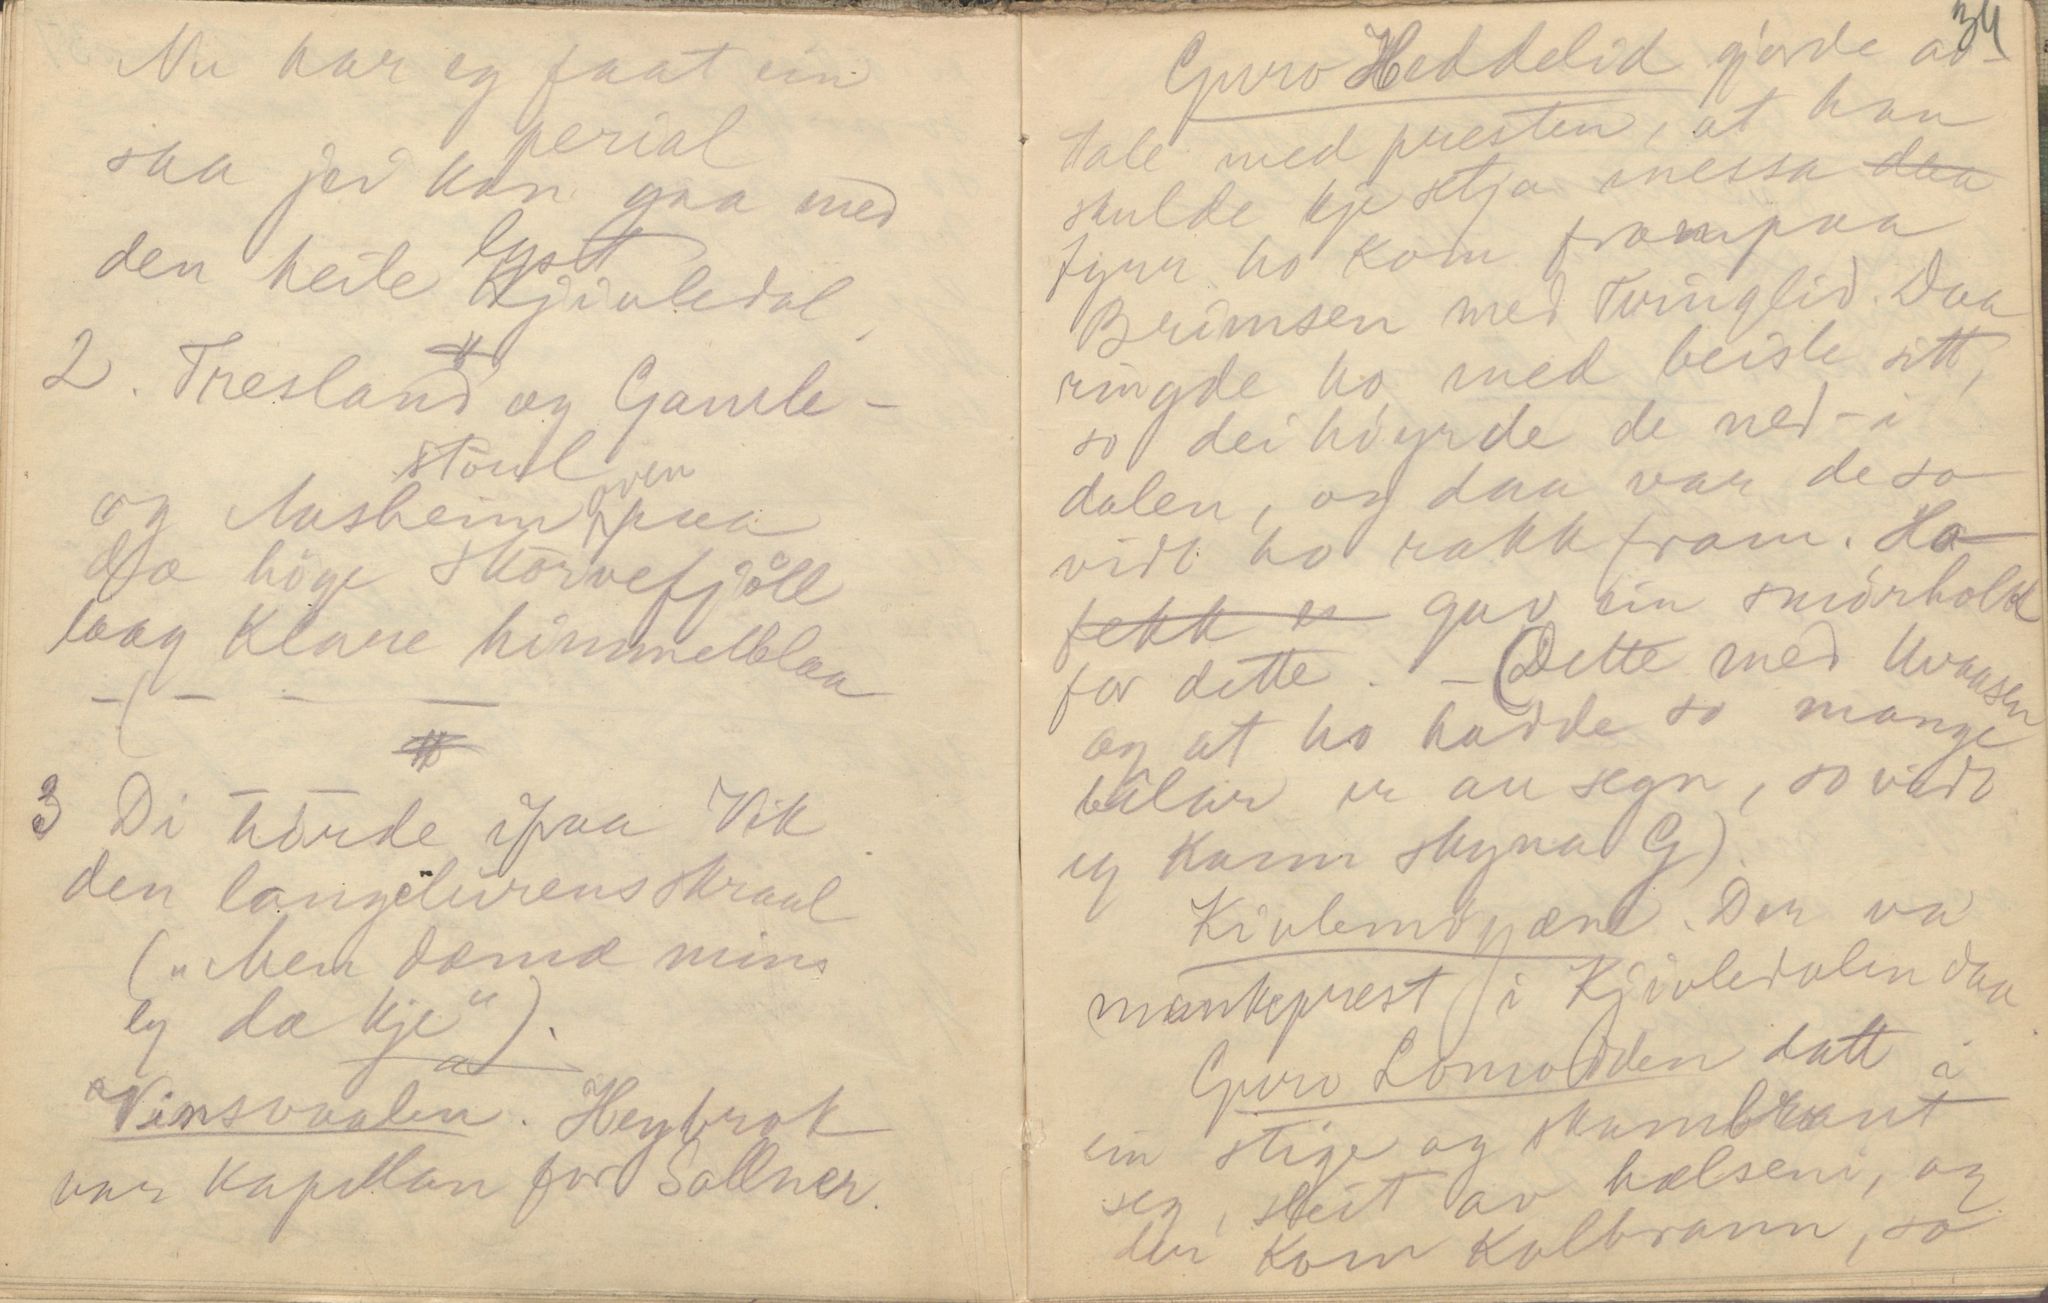 Nu har eg faat ein
perial
saa jei kan gaa med
lyst
den heile Kjivledal,
2. Tresland og Gamle-
stöul
og Aasheim oven paa
dæ höge Skorvefjöll
laag klare himmelblaa
3 Di hörde ifraa Vik
den langelurens skraal
(„Men dæmæ mins
eg dæ kje").
Vinsvaalen. Heybrok
var kapellan for Sollner.
34
Guro Heddelid gjorde av-
tale med presten, at han
skulde kje setja messa daa
fyrr ho kom frampaa
Brimsen med Tvinglid. Daa
ringde ho med beisle sitt,
so dei höyrde de ned-i
dalen, og daa var de so
vidt ho rakk fram. Ho
fekk ei gav ein smörholk
for dette. – (Dette med Uvaasen
og at ho hadde so mange
bilar er au segn, so vidt
eg kann skyna G).
Kivlemöyæne. Der va
munkeprest i Kjivledalen daa
Guro Lomodden datt i
ein stige og skambraut
seg, sleit av hælseni, og
der kom kolbrann, so